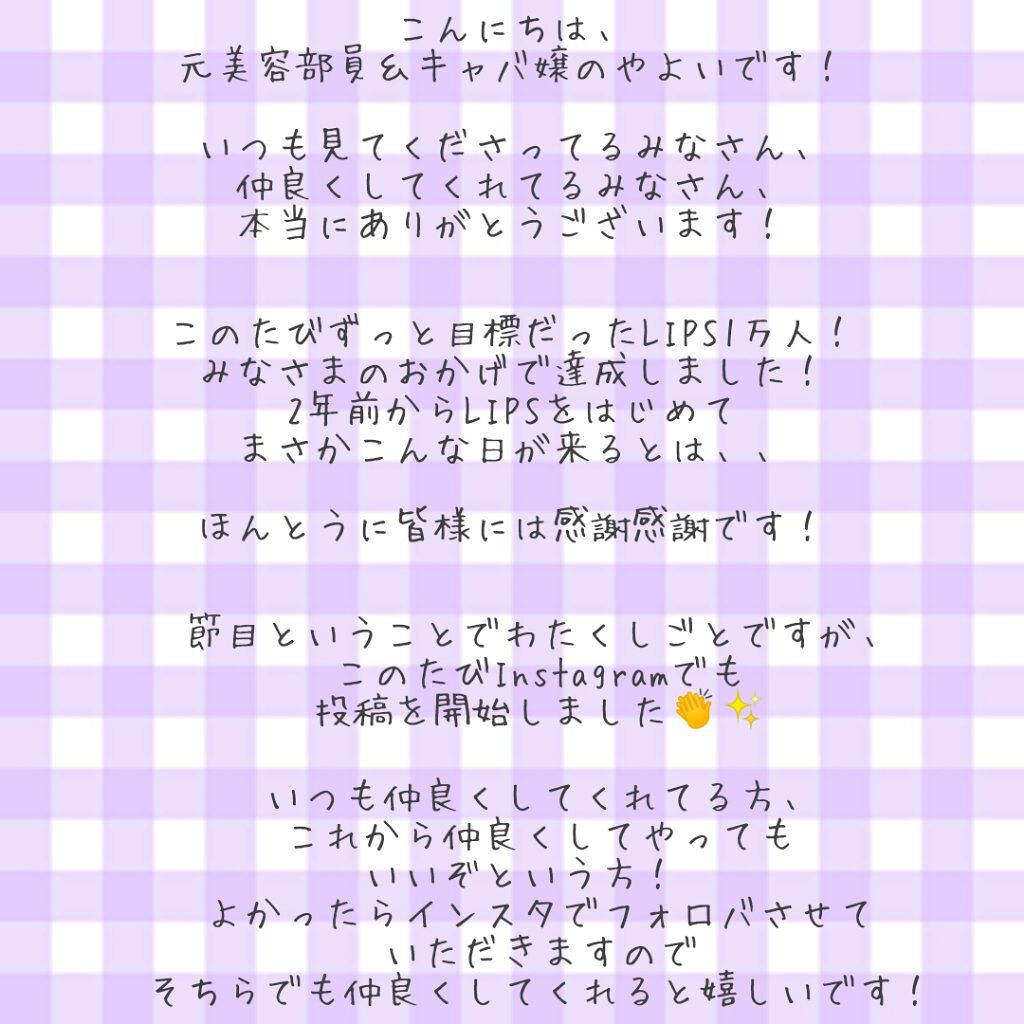 こんにちは、
元美容部員＆キャバ嬢のやよいです！
いつも見てくださってるみなさん、
仲良くしてくれてるみなさん、
本当にありがとうございます！
このたびずっと目標だったLIPS1万人！
みなさまのおかげで達成しました！
2年前からLIPSをはじめて
まさかこんな日が来るとは、、
ほんとうに皆様には感謝感謝です！
節目ということでわたくしごとですが、
このたびInstagramでも
投稿を開始しました👏✨
いつも仲良くしてくれてる方、
これから仲良くしてやっても
いいぞという方！
よかったらインスタでフォロバさせて
いただきますので
そちらでも仲良くしてくれると嬉しいです！